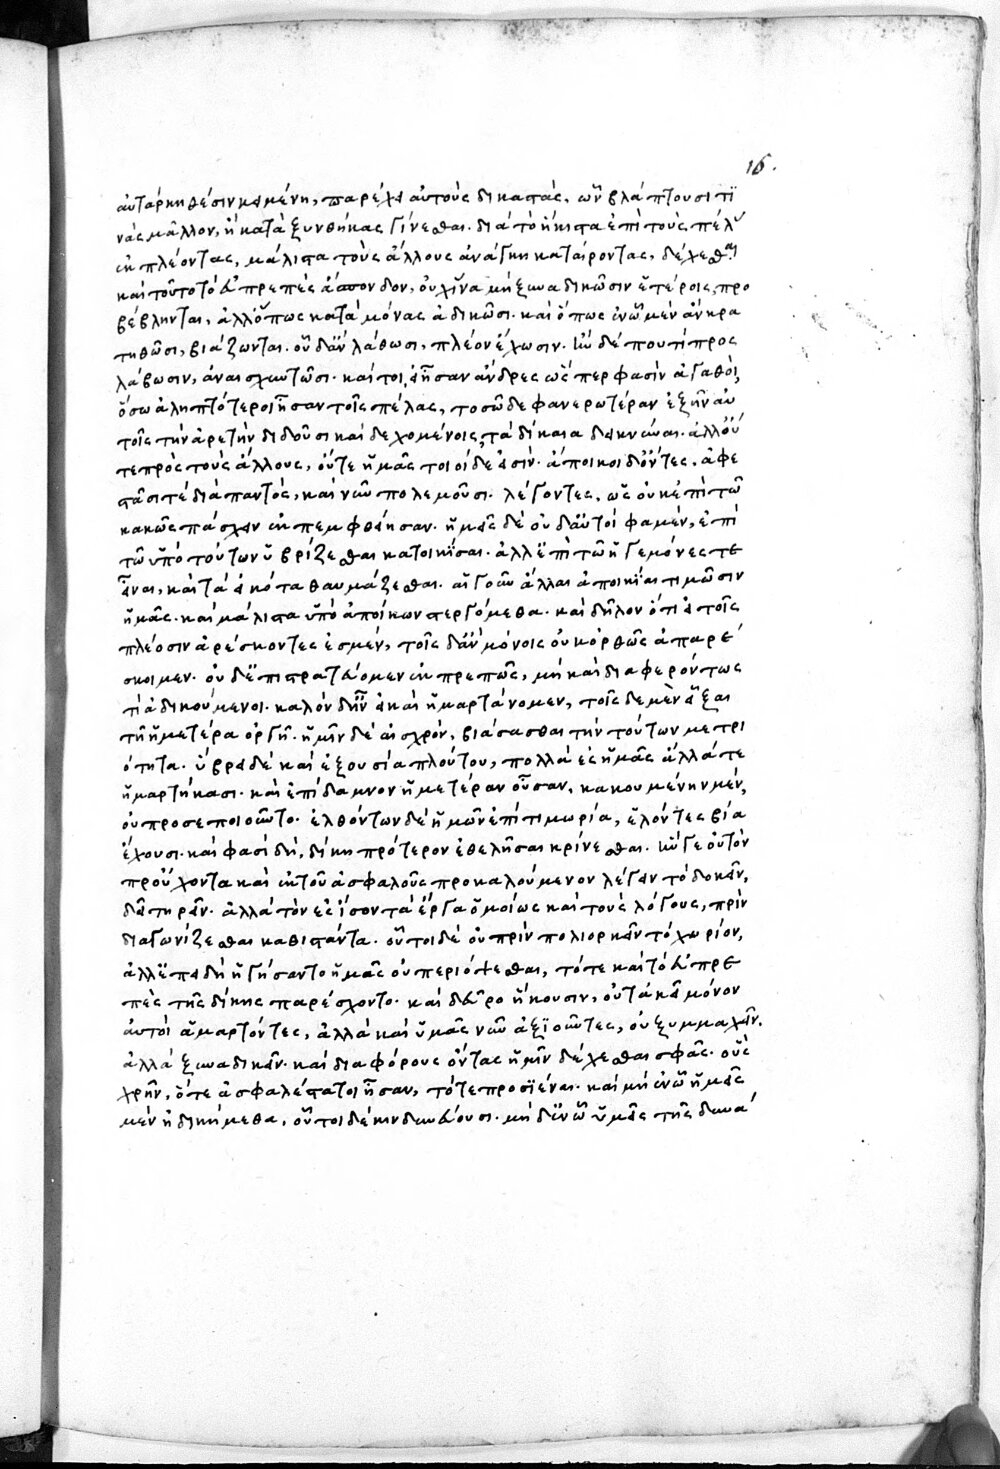 16.
αὐτάρκη θέσιν κειμένη, παρέχει αὐτοὺς δικαστὰς, ὧν βλάπτουσι τι
νὰς μᾶλλον, ἢ κατὰ ξυνθήκας γίνεσθαι. διὰ τὸ ἥκιστα ἐπὶ τοὺς πέλας
ἐκπλέοντας, μάλιστα τοὺς ἄλλους ἀνάγκη καταίροντας, δέχεσθαι
καὶ τοῦτο τὸ εὐπρεπὲς ἄσπονδον, οὐχ ἵνα μὴ ξυναδικῶσιν ἑτέροις, προ
βέβληνται, ἀλλ' ὅπως κατὰ μόνας ἀδικῶσι. καὶ ὅπως ἐν ὧ μὲν ἂν κρα
τηθῶσι, βιάζωνται. οὗ δ' ἂν λάθωσι, πλέον ἔχωσιν. ἢν δέ που τί προς
λάβωσιν, ἀναισχυντῶσι. καίτοι, εἰ ἦσαν ἄνδρες ὥσπερ φασὶν ἀγαθοὶ,
ὅσω ἀληπτότεροι ἦσαν τοῖς πέλας, τοσῶδε φανερωτέραν ἐξῆν αὐ
τοῖς τὴν ἀρετὴν διδοῦσι καὶ δεχομένοις, τὰ δίκαια δεικνύναι. ἀλλ' οὔ
τε πρὸς τοὺς ἄλλους, οὔτε ἡμᾶς τοιοίδε εἰσίν. ἄποικοι δ' ὄντες, ἀφε
στᾶσί τε διὰ παντὸς, καὶ νῦν πολεμοῦσι. λέγοντες, ὡς οὐκ ἐπὶ τῶ
κακῶς πάσχειν ἐκπεμφθείησαν. ἡμεῖς δὲ οὐδ' αὐτοί φαμὲν, ἐπὶ
τῶ ὑπὸ τούτων ὑβρίζεσθαι κατοικίσαι. ἀλλ' ἐπὶ τῶ ἡγεμόνες τε
εἶναι, καὶ τὰ εἰκότα θαυμάζεσθαι. αἱ γοῦν ἄλλαι ἀποικίαι τιμῶσιν
ἡμᾶς. καὶ μάλιστα ὑπὸ ἀποίκων στεργόμεθα. καὶ δῆλον ὅτι εἰ τοῖς
πλέοσιν ἀρέσκοντες ἐσμὲν, τοῖς δ' ἂν μόνοις οὐκ ὀρθῶς ἀπαρέ
σκοιμεν. οὐδ' ἐπιστρατεύομεν ἐκπρεπῶς, μὴ καὶ διαφερόντως
τὶ ἀδικούμενοι. καλὸν δ' ἦν εἰ καὶ ἡμαρτάνομεν, τοῖς δε μὲν εἶξαι
τῆ ἡμετέρα ὀργῆ. ἡμῖν δὲ αἰσχρὸν, βιάσασθαι τὴν τούτων μετρι
ότητα. ὕβρει δὲ καὶ ἐξουσία πλούτου, πολλὰ ἐς ἡμᾶς ἄλλά τε
ἡμαρτήκασι. καὶ ἐπίδαμνον ἡμετέραν οὖσαν, κακουμένην μὲν,
οὐ προσεποιοῦντο. ἐλθόντων δὲ ἡμῶν ἐπὶ τιμωρία, ἑλόντες βία
ἔχουσι. καὶ φασὶ δὴ, δίκη πρότερον ἐθελῆσαι κρίνεσθαι. ἥν γε οὐ τὸν
προὔχοντα καὶ ἐκ τοῦ ἀσφαλοῦς προκαλούμενον λέγειν τὸ δοκεῖν,
δεῖ τηρεῖν. ἀλλὰ τὸν ἐς ἴσον τὰ ἔργα ὁμοίως καὶ τοὺς λόγους, πρὶν
διαγωνίζεσθαι καθιστάντα. οὗτοι δὲ οὐ πρὶν πολιορκεῖν τὸ χωρίον,
ἀλλ' ἐπειδὴ ἡγήσαντο ἡμᾶς οὐ περιόψεσθαι, τότε καὶ τὸ εὐπρε
πὲς τῆς δίκης παρέσχοντο. καὶ δεῦρο ἥκουσιν, οὐ τἀκεῖ μόνον
αὐτοὶ ἁμαρτόντες, ἀλλὰ καὶ ὑμᾶς νῦν ἀξιοῦντες, οὐ ξυμμαχεῖν.
ἀλλὰ ξυναδικεῖν. καὶ διαφόρους ὄντας ἡμῖν δέχεσθαι σφᾶς. οὓς
χρῆν, ὅτε ἀσφαλέστατοι ἦσαν, τότε προσιέναι. καὶ μὴ ἐν ὧ ἡμεῖς
μὲν ἠδικήμεθα, οὗτοι δὲ κινδυνεύουσι. μὴ δ' ἐν ὧ ὑμεῖς τῆς δυνά